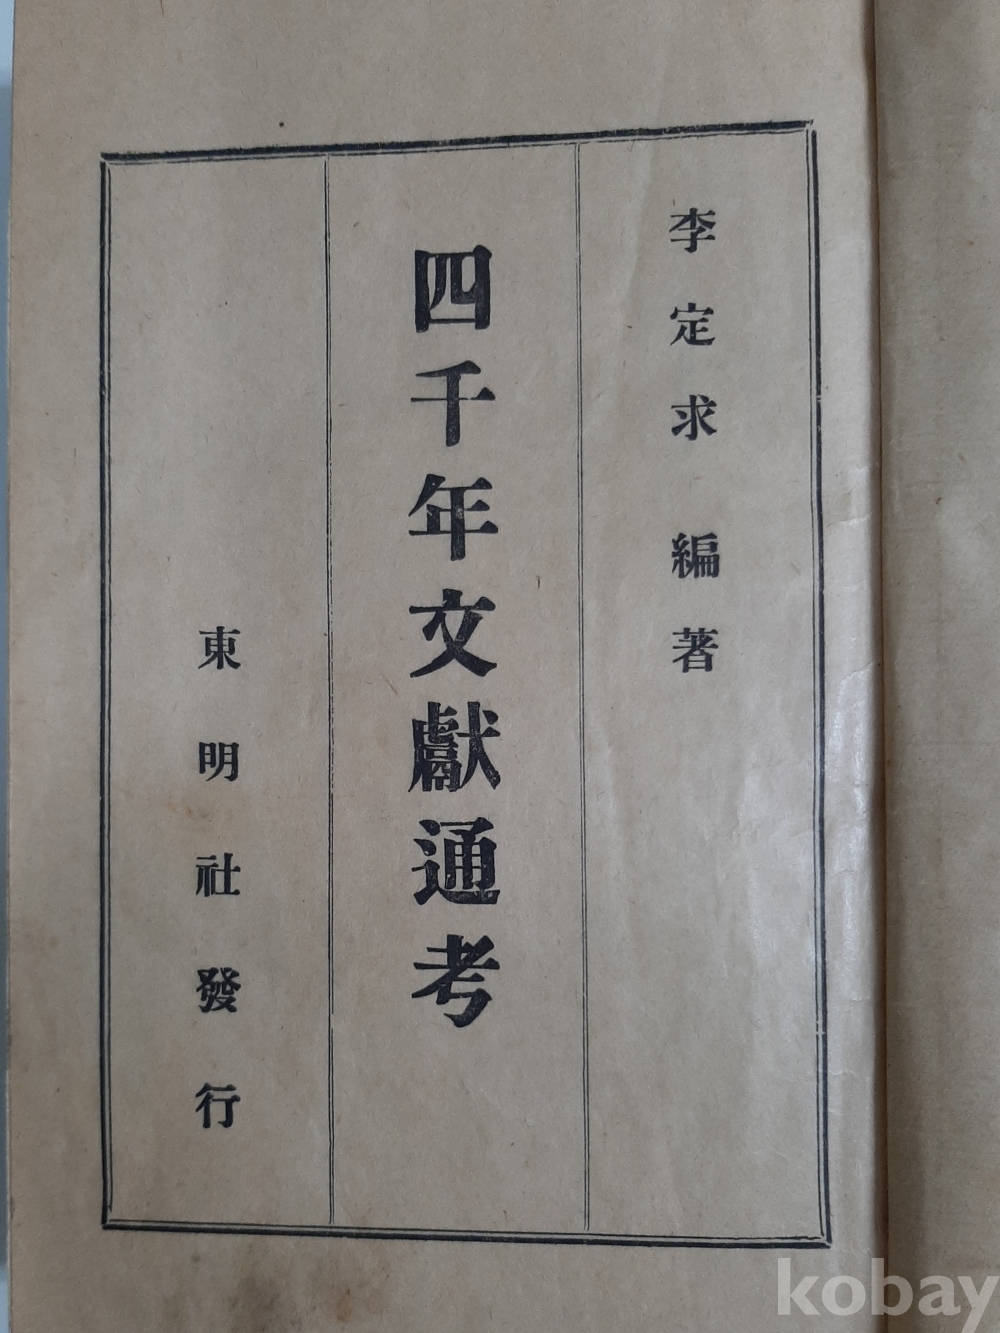 李定求 編著
四千年文獻通考
東明社發行
kobay